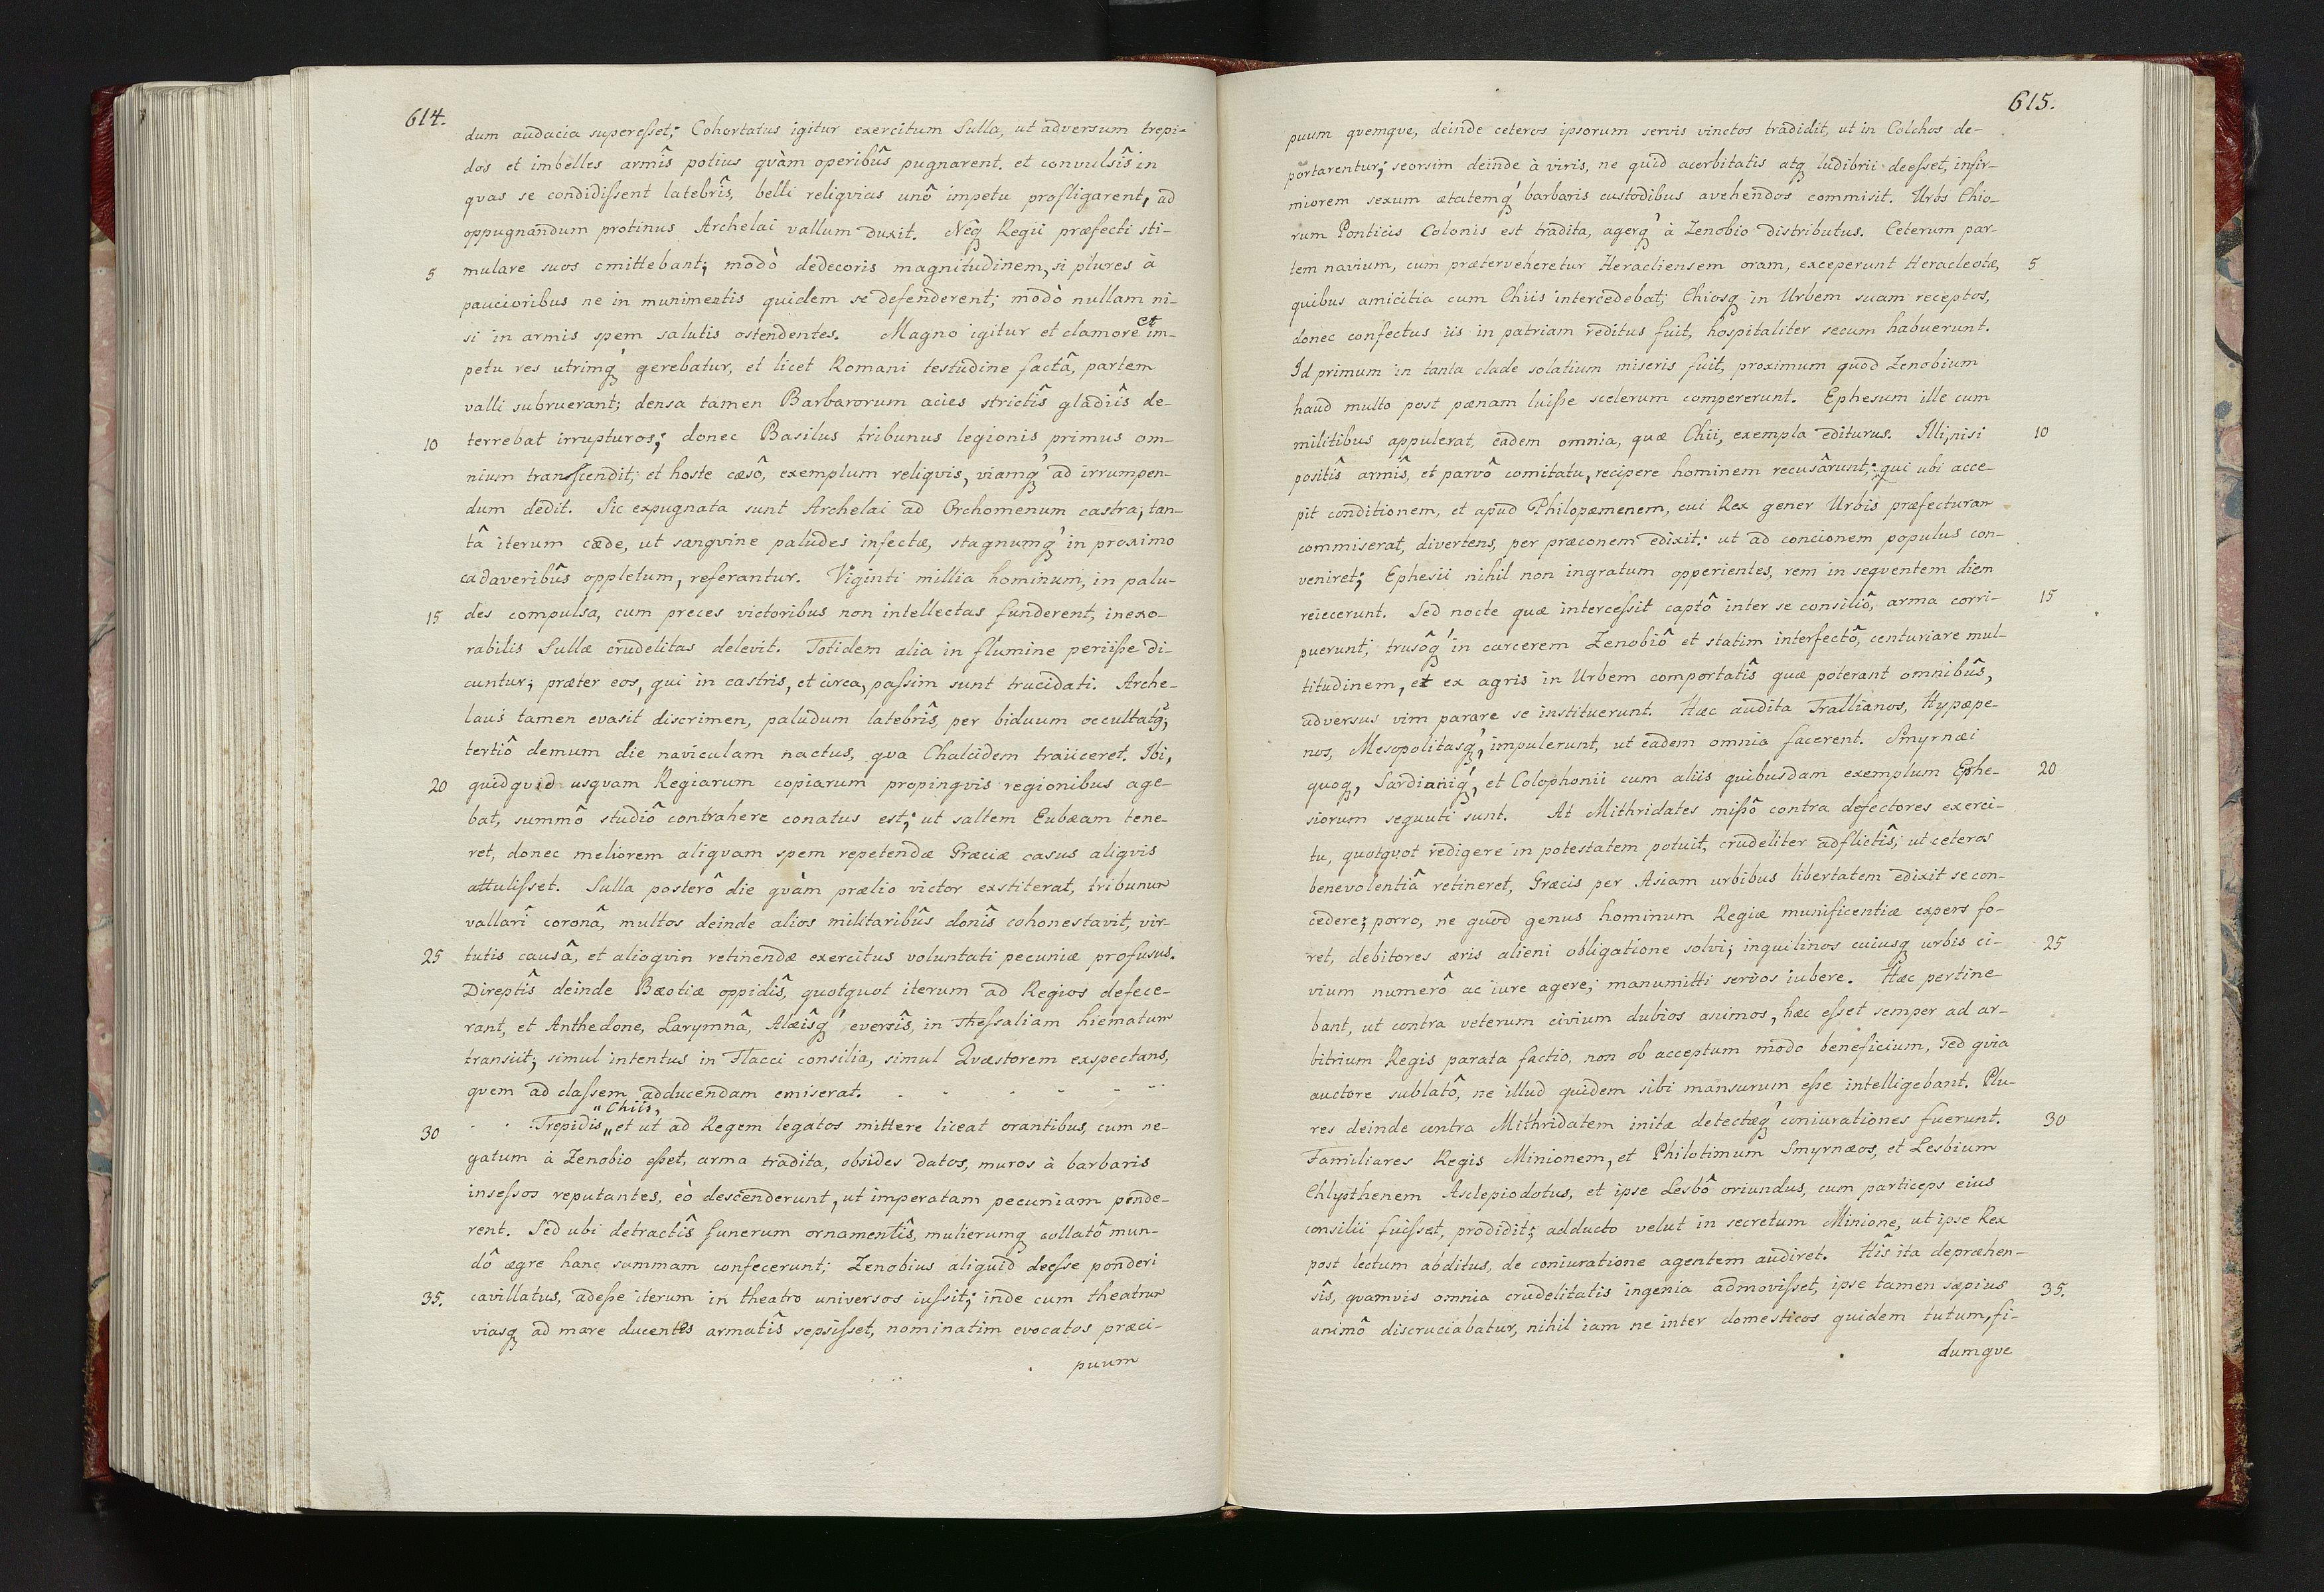 614.
dum audacia superesset; Cohortatus igitur exercitum Sulla, ut adversum trepi-
dos et imbelles armîs potius quàm operibûs pugnarent. et convulsîs in
qvas se condidissent latebrîs, belli reliqvias unô impetu profligarent, ad
oppugnandum protinus Archelai vallum duxit. Neq Regii præfecti sti-
5 mulare suos omittebant; modò dedecoris magnitudinem, si plures à
paucioribus ne in munimentis quidem se defenderent; modò nullam ni-
si in armis spem salutis ostendentes. Magno igitur et clamore et im-
petu res utrimq́ gerebatur, et licet Romani testudine factâ, partem
valli subruerant; densa tamen Barbarorum acies strictîs gladiîs de-
10 terrebat irrupturos; donec Basilus tribunus legionis primus om-
nium transscendit; et hoste cæsô, exemplum reliqvis, viamq́ ad irrumpen-
dum dedit. Sic expugnata sunt Archelai ad Orchomenum castra; tan-
tâ iterum cæde, ut sangvine paludes infectæ, stagnumq́ in proximo
cadaveribûs oppletum, referantur. Viginti millia hominum, in palu-
15 des compulsa, cum preces victoribus non intellectas funderent, inexo-
rabilis Sullæ crudelitas delevit. Totidem alia in flumine periisse di-
cuntur; præter eos, qui in castris, et circa, passim sunt trucidati. Arche-
laus tamen evasit discrimen, paludum latebrîs, per biduum occultatq,
tertiô demum die naviculam nactus, qva Chalcidem traiiceret. Ibi,
20 quidqvid usqvam Regiarum copiarum propinqvis regionibus age-
bat, summô studiô contrahere conatus est; ut saltem Eubæam tene-
ret, donec meliorem aliqvam spem repetendæ Græciæ casus aliqvis
attulisset. Sulla posterô die qvàm prælio victor exstiterat, tribunum
vallarî coronâ, multos deinde alios militaribûs donîs cohonestavit, vir-
25 tutis causâ, et alioqvin retinendæ exercitus voluntati pecuniæ profusus.
Direptîs deinde Bæotiæ oppidîs, quotquot iterum ad Regios defece-
rant, et Anthedone, Larymnâ, Alæisq́ eversîs, in Thessaliam hiematum
transiit; simul intentus in Flacci consilia, simul Qvæstorem exspectans,
qvem ad classem adducendam emiserat. - - - - - - -
„Chiis,
30 - - Trepidis „ et ut ad Regem legatos mittere liceat orantibus, cum ne-
gatum à Zenobio esset, arma tradita, obsides datos, muros à barbaris
insessos reputantes, eò descenderunt, ut imperatam pecuniam pende-
rent. Sed ubi detractîs funerum ornamentîs, mulierumq collatô mun-
dô ægre hanc summam confecerunt; Zenobius aliquid deesse ponderi
35. cavillatus, adesse iterum in theatro universos iussit; inde cum theatrum
viasq ad mare ducentes armatîs sepsisset, nominatim evocatos præci-
puum
615.
puum qvemqve, deinde ceteros ipsorum servis vinctos tradidit, ut in Colchos de-
portarentur; seorsim deinde à viris, ne quid acerbitatis atq ludibrii deesset, infir-
miorem sexum ætatemq́ barbaris custodibus avehendos commisit. Urbs Chio-
rum Ponticis Colonis est tradita, agerq́ à Zenobio distributus. Ceterum par-
tem navium, cum præterveheretur Heracliensem oram, exceperunt Heracleotæ, 5
quibus amicitia cum Chiis intercedebat; Chiosq in Urbem suam receptos,
donec confectus iis in patriam reditus fuit, hospitaliter secum habuerunt.
Id primum in tanta clade solatium miseris fuit, proximum quod Zenobium
haud multo post pænam luisse scelerum compererunt. Ephesum ille cum
militibus appulerat, eadem omnia, quæ Chii, exempla editurus. Illi, nisi 10
positîs armîs, et parvô comitatu, recipere hominem recusârunt; qui ubi acce-
pit conditionem, et apud Philopæmenem, cui Rex gener Urbis præfecturam
commiserat, divertens, per præconem edixit: ut ad concionem populus con-
veniret; Ephesii nihil non ingratum opperientes, rem in seqventem diem
reiecerunt. Sed nocte quæ intercessit captô inter se consiliô, arma corri- 15
puerunt; trusôq́ in carcerem Zenobiô et statim interfectô, centuriare mul-
titudinem, et ex agris in Urbem comportatîs quæ poterant omnibûs,
adversus vim parare se instituerunt. Hæc audita Trallianos, Hypæpe-
nos, Mesopolitasq́, impulerunt, ut eadem omnia facerent. Smyrnæi
quoq, Sardianiq́, et Colophonii cum aliis quibusdam exemplum Ephe- 20
siorum seqvuti sunt. At Mithridates missô contra defectores exerci-
tu, quotqvot redigere in potestatem potuit, crudeliter adflictîs, ut ceteros
benevolentiâ retineret, Græcis per Asiam urbibus libertatem edixit se con-
cedere; porro, ne quod genus hominum Regiæ munificentiæ expers fo-
ret, debitores æris alieni obligatione solvi; inquilinos cuiusq urbis ci- 25
vium numerô ac iure agere; manumitti servos iubere. Hæc pertine
bant, ut contra veterum civium dubios animos, hæc esset semper ad ar-
bitrium Regis parata factio, non ob acceptum modo beneficium, sed qvia
auctore sublatô, ne illud quidem sibi mansurum esse intelligebant. Plu-
res deinde contra Mithridatem initæ detectæq́ coniurationes fuerunt. 30
Familiares Regis Minionem, et Philotimum Smyrnæos, et Lesbium
Chlysthenem Asclepiodotus, et ipse Lesbô oriundus, cum particeps eius
consilii fuisset, prodidit; adducto velut in secretum Minione, ut ipse Rex
post lectum abditus, de coniuratione agentem audiret. Hîs ita depræhen-
sîs, qvamvis omnia crudelitatis ingenia admovisset, ipse tamen sæpius 35.
animô discruciabatur, nihil iam ne inter domesticos quidem tutum, fi-
dumqve